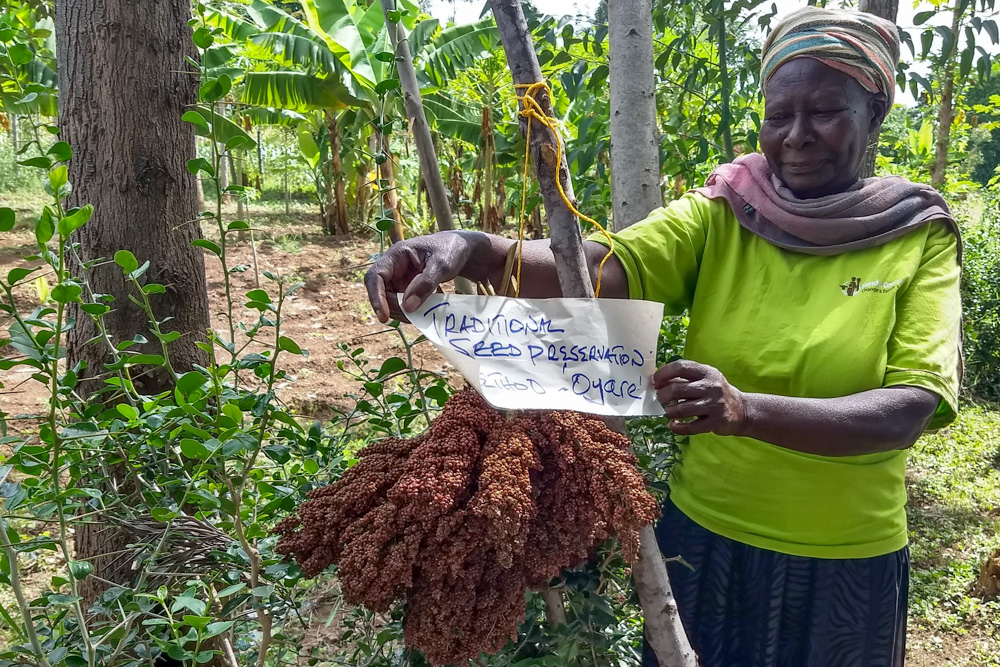 TRADITIONAL
SEED PRESERVATION
ETHOD - Oyare'